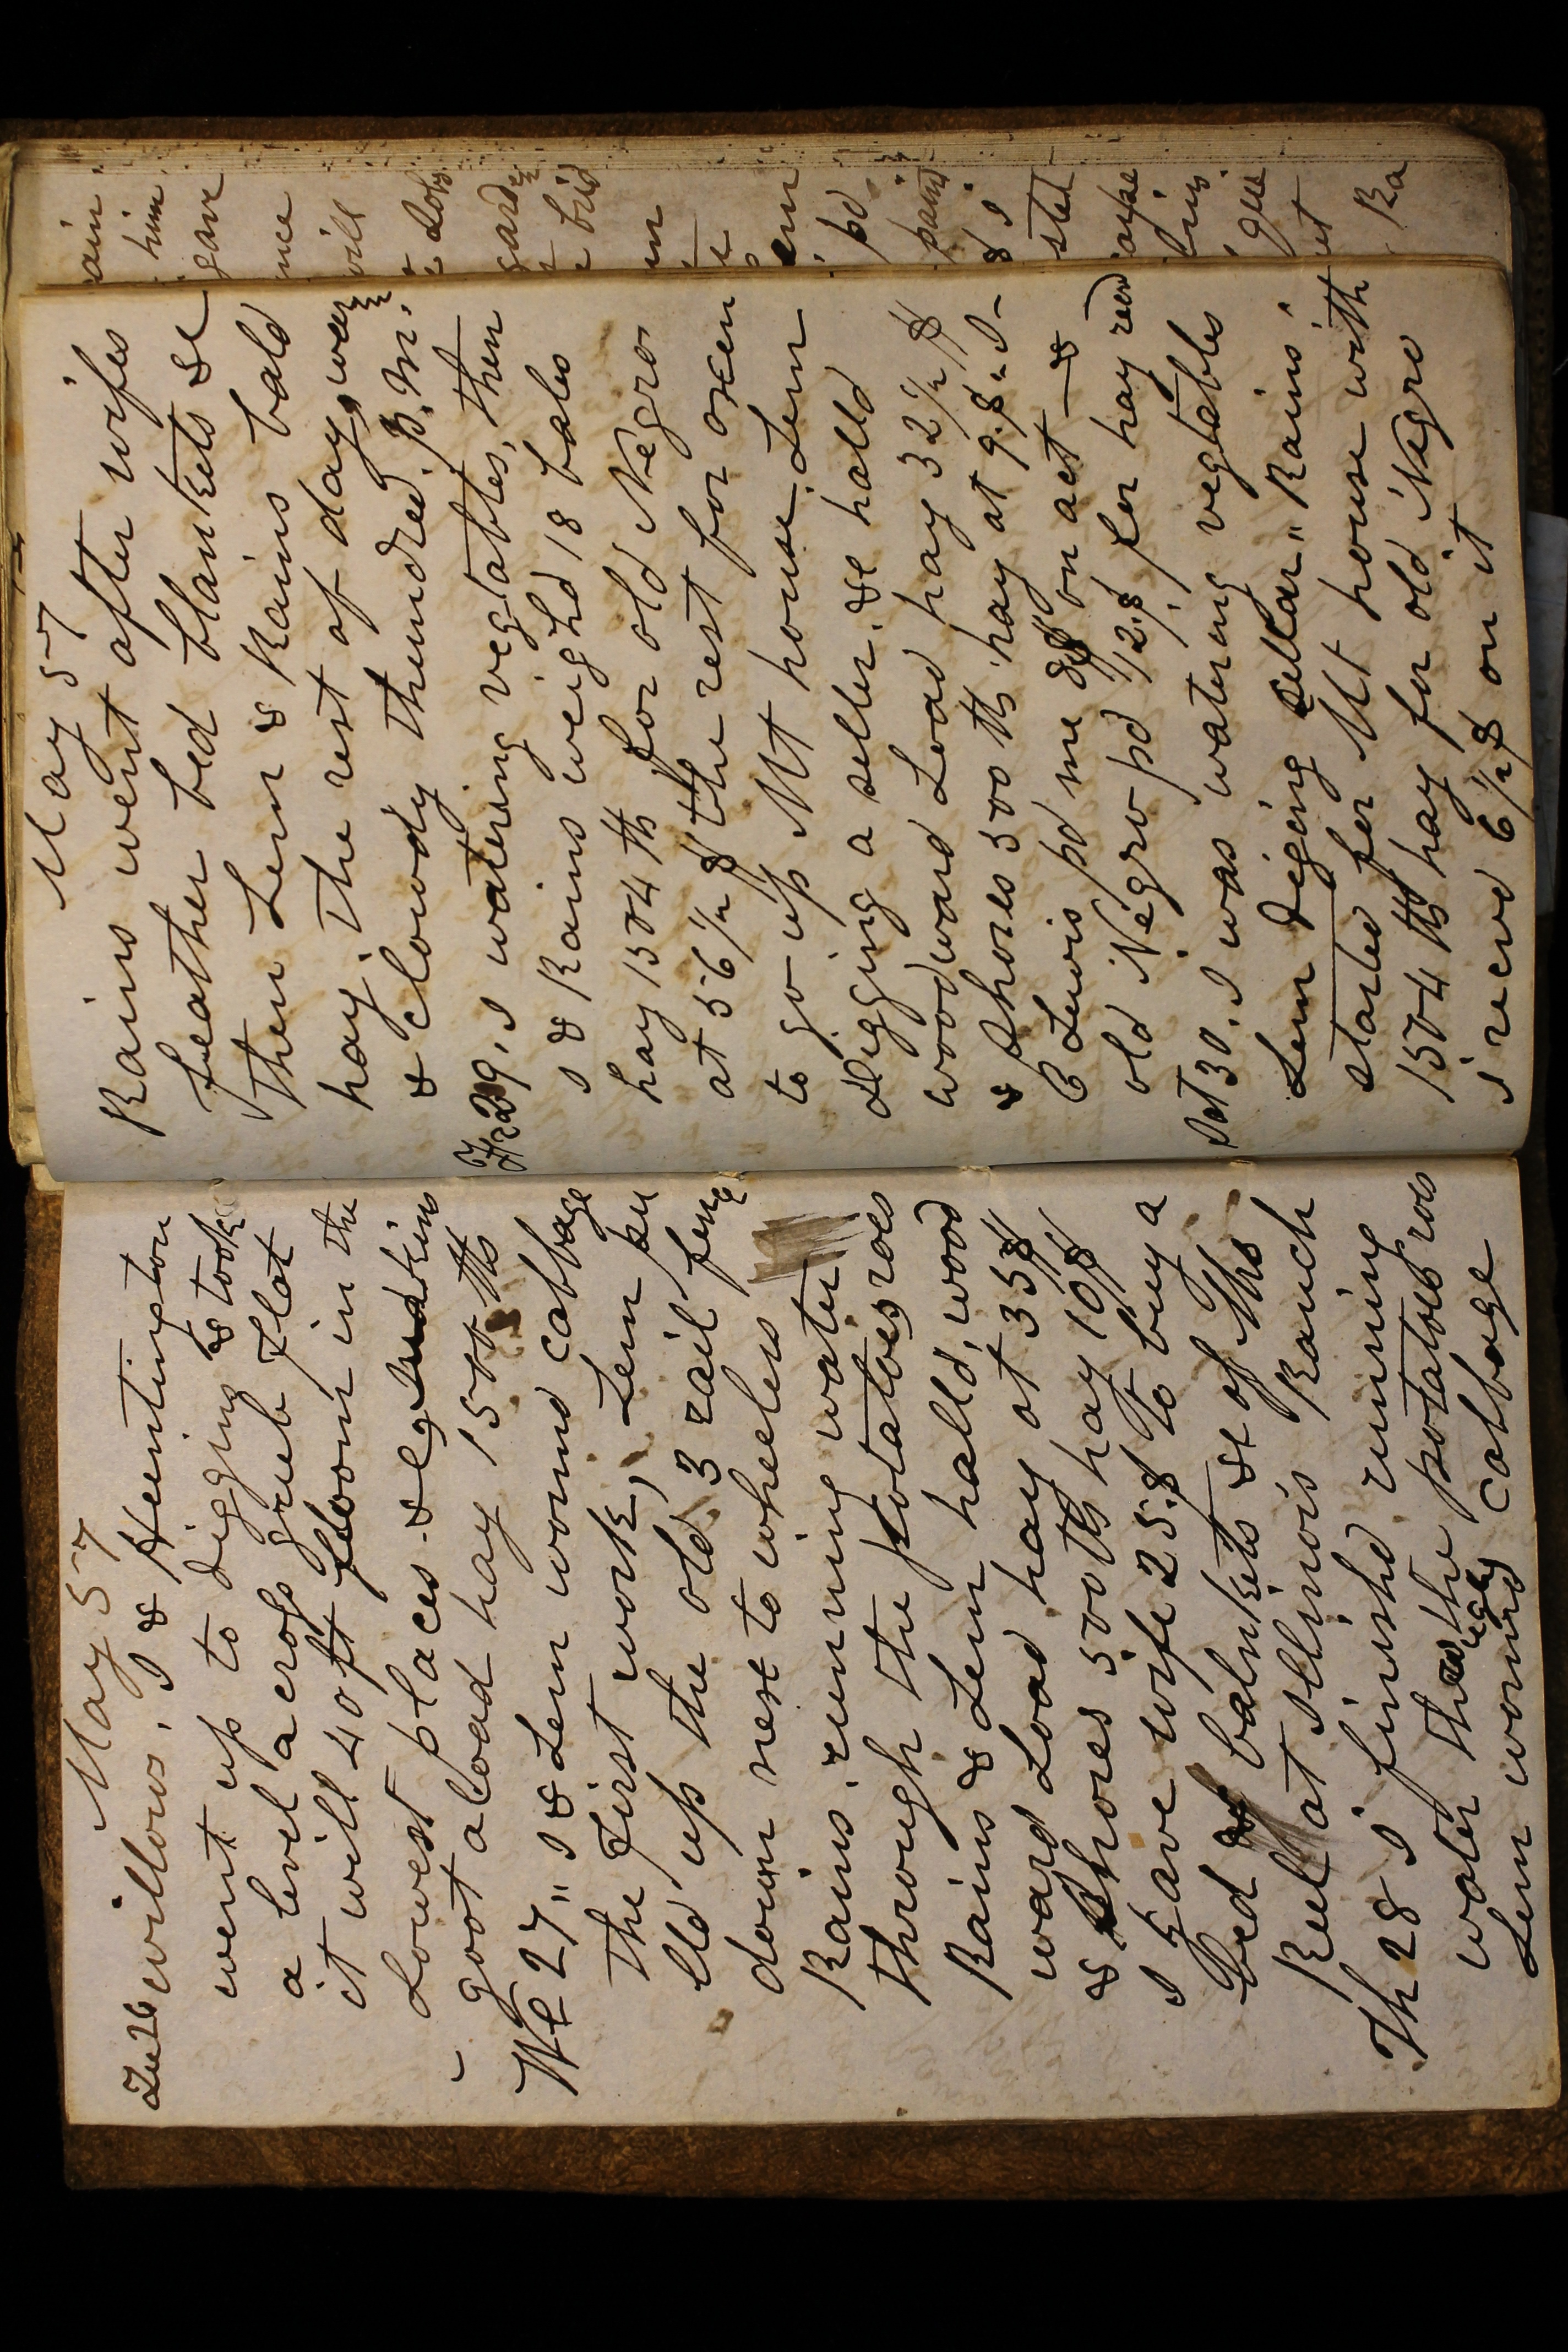 May 57
Tu 26 willows. I & Huntington
went up to digging & took
a levil across grub flat
it will 40 ft floom in the
Lowest places. &c
got a load hay 1500 lbs
We 27 " I & Lem wormd cabbage
the first work, Lem pu
lld up the old 3 rail fence
down next to wheelers
Rains. running water
through the potatoes rows
Rains & Lem halld, wood
ward Load hay at 35$
& Shores 500 lbs hay 10$
I gave wife 25.$ to buy a
bed balnkets &c of Mrs
Ruel at Illinois Ranch
Th 28 I finishd running
water through the potatoes rows
Lem wormd cabbage
May 57
Rains went after wifes
feather bed blankets &c
Then Lem & Rains bald
hay. The rest of day,
& cloudy thundred. P.M.
Fr 29, I watering vegtables, then
I & Rains weighd 18 bales
hay 1504 lbs for old Negro
at 56 1/2 $ the rest for oxen
to go up Mt house. Lem
digging a seller. &c halld
woodward Load hay 32 1/2 $
& Shores 500 lbs hay at 9.$
C Lewis pd me on act — &
old Negro pd 12.$ for hay
Sat 30. I was watering vegtables
Lem diging sellar " Rains
started for Mt house with
1504 lbs hay for old Negro
I recvd 6 1/2 $ on it
ain
him
gave
will
garden
bed
in
pd
paid
& I
Ra